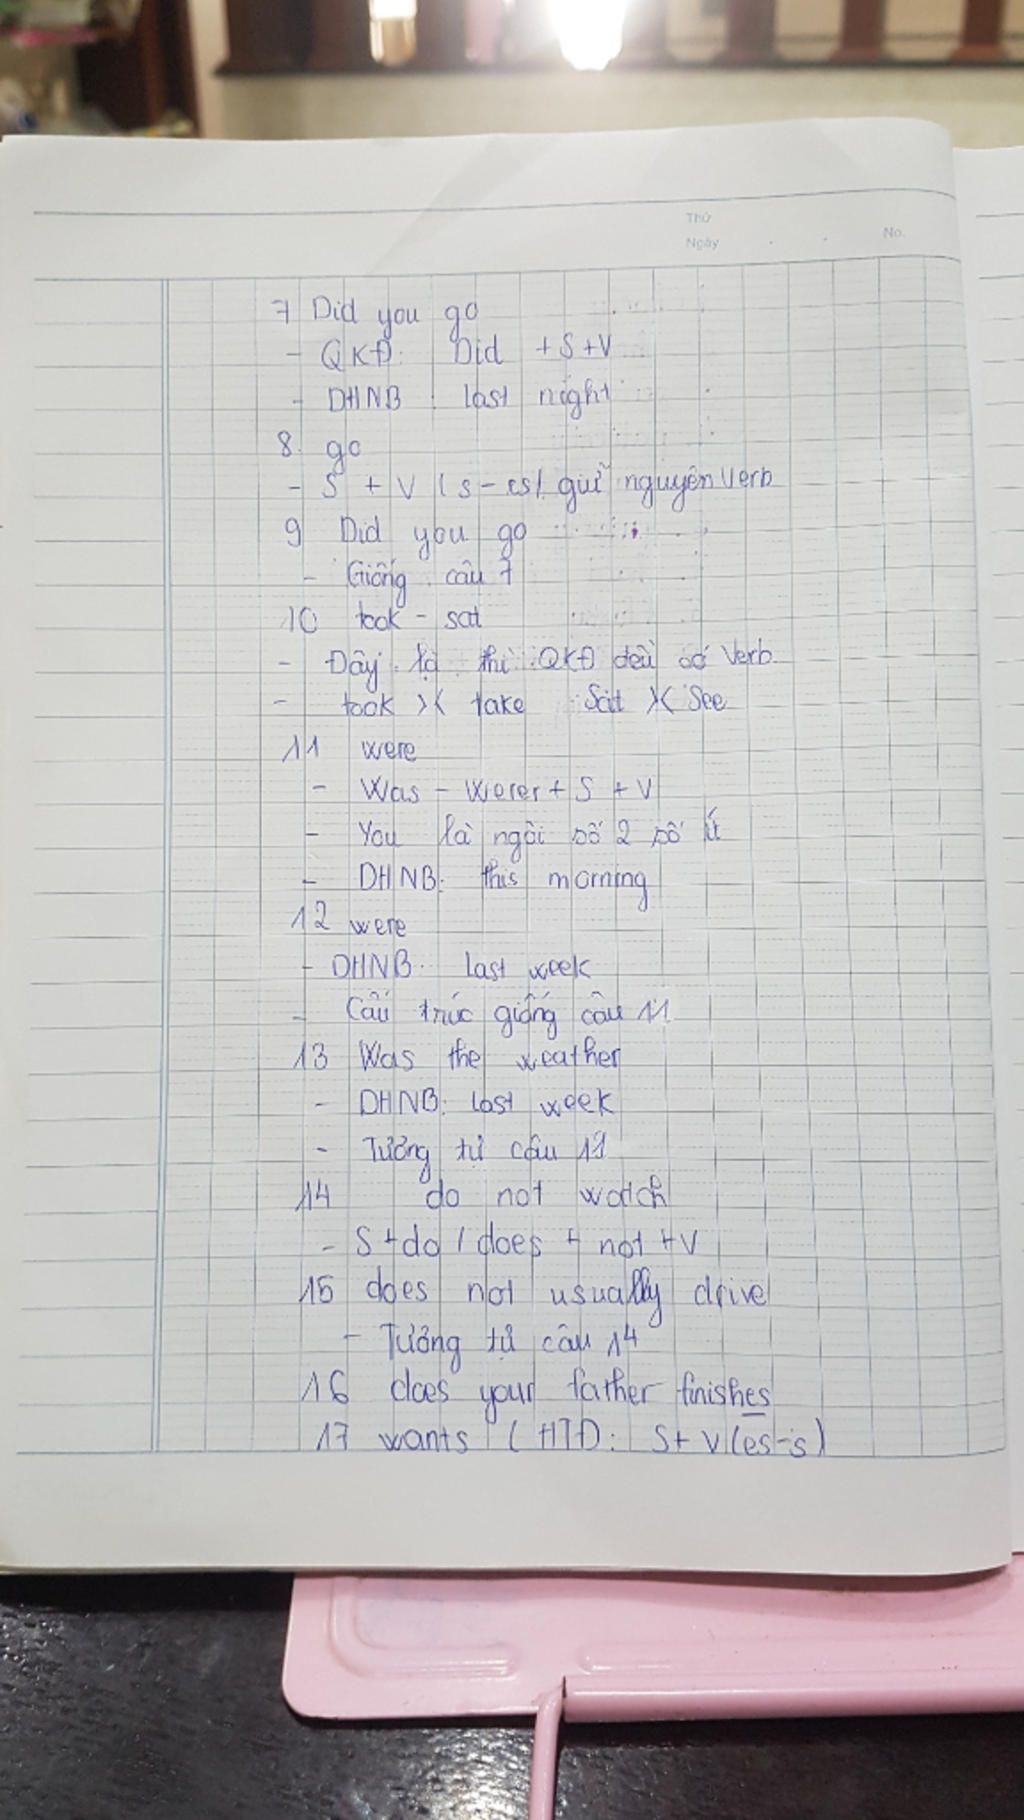 Thứ
Ngày
No.
7 Did you go
- QKĐ: Did + S + V
- DHNB: last night
8. go
- S + V (s-es) giữ nguyên Verb
9 Did you go
- Giống câu 7
10 took - sat
- Đây là thì QKĐ đều có Verb
- took >< take Sat >< See
11 were
- Was - werer + S + V
- You là ngôi số 2 số ít
- DHNB: this morning
12 were
- DHNB: last week
- Cấu trúc giống câu 11
13 Was the weather
- DHNB: last week
- Tương tự câu 11
14 do not watch
- S + do / does + not + V
15 does not usually drive
- Tương tự câu 14
16 does your father finishes
17 wants (HTĐ: S + V (es-s)